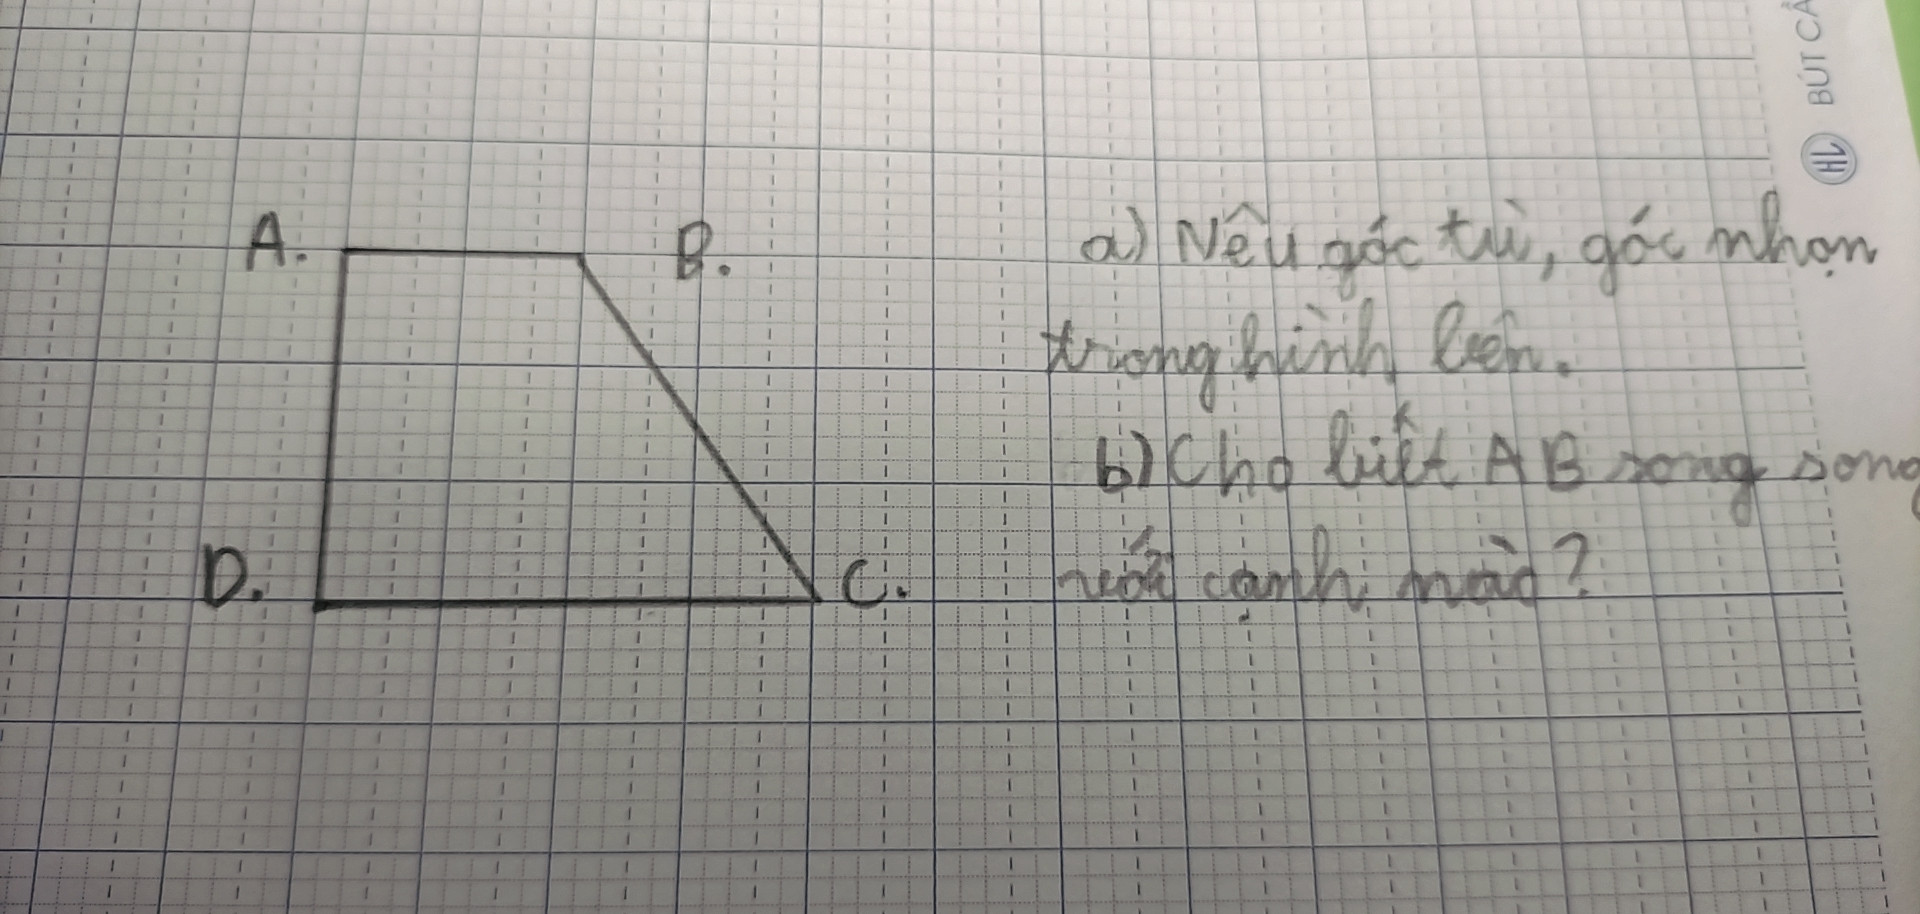 BÚT CẢ
HL
A.
B.
a) Nêu góc tù, góc nhọn
trong hình bên.
b) Cho biết AB song song
với cạnh nào?
D.
C.